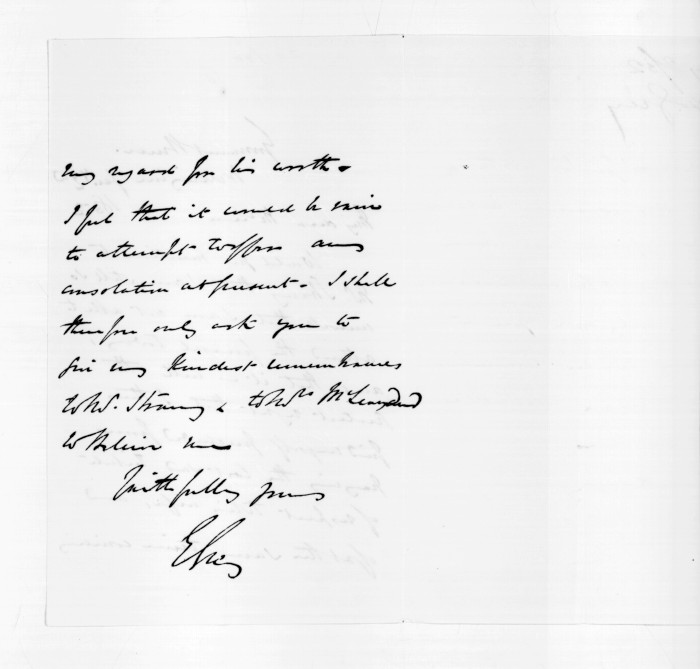 my regard for his worth.
I feel that it would be vain
to attempt to offer any
consolation at present. I shall
therefore only ask you to
give my kindest remembrances
to Mr. Strang & to Mrs McLean and
to believe me
Faithfully yours
G Grey